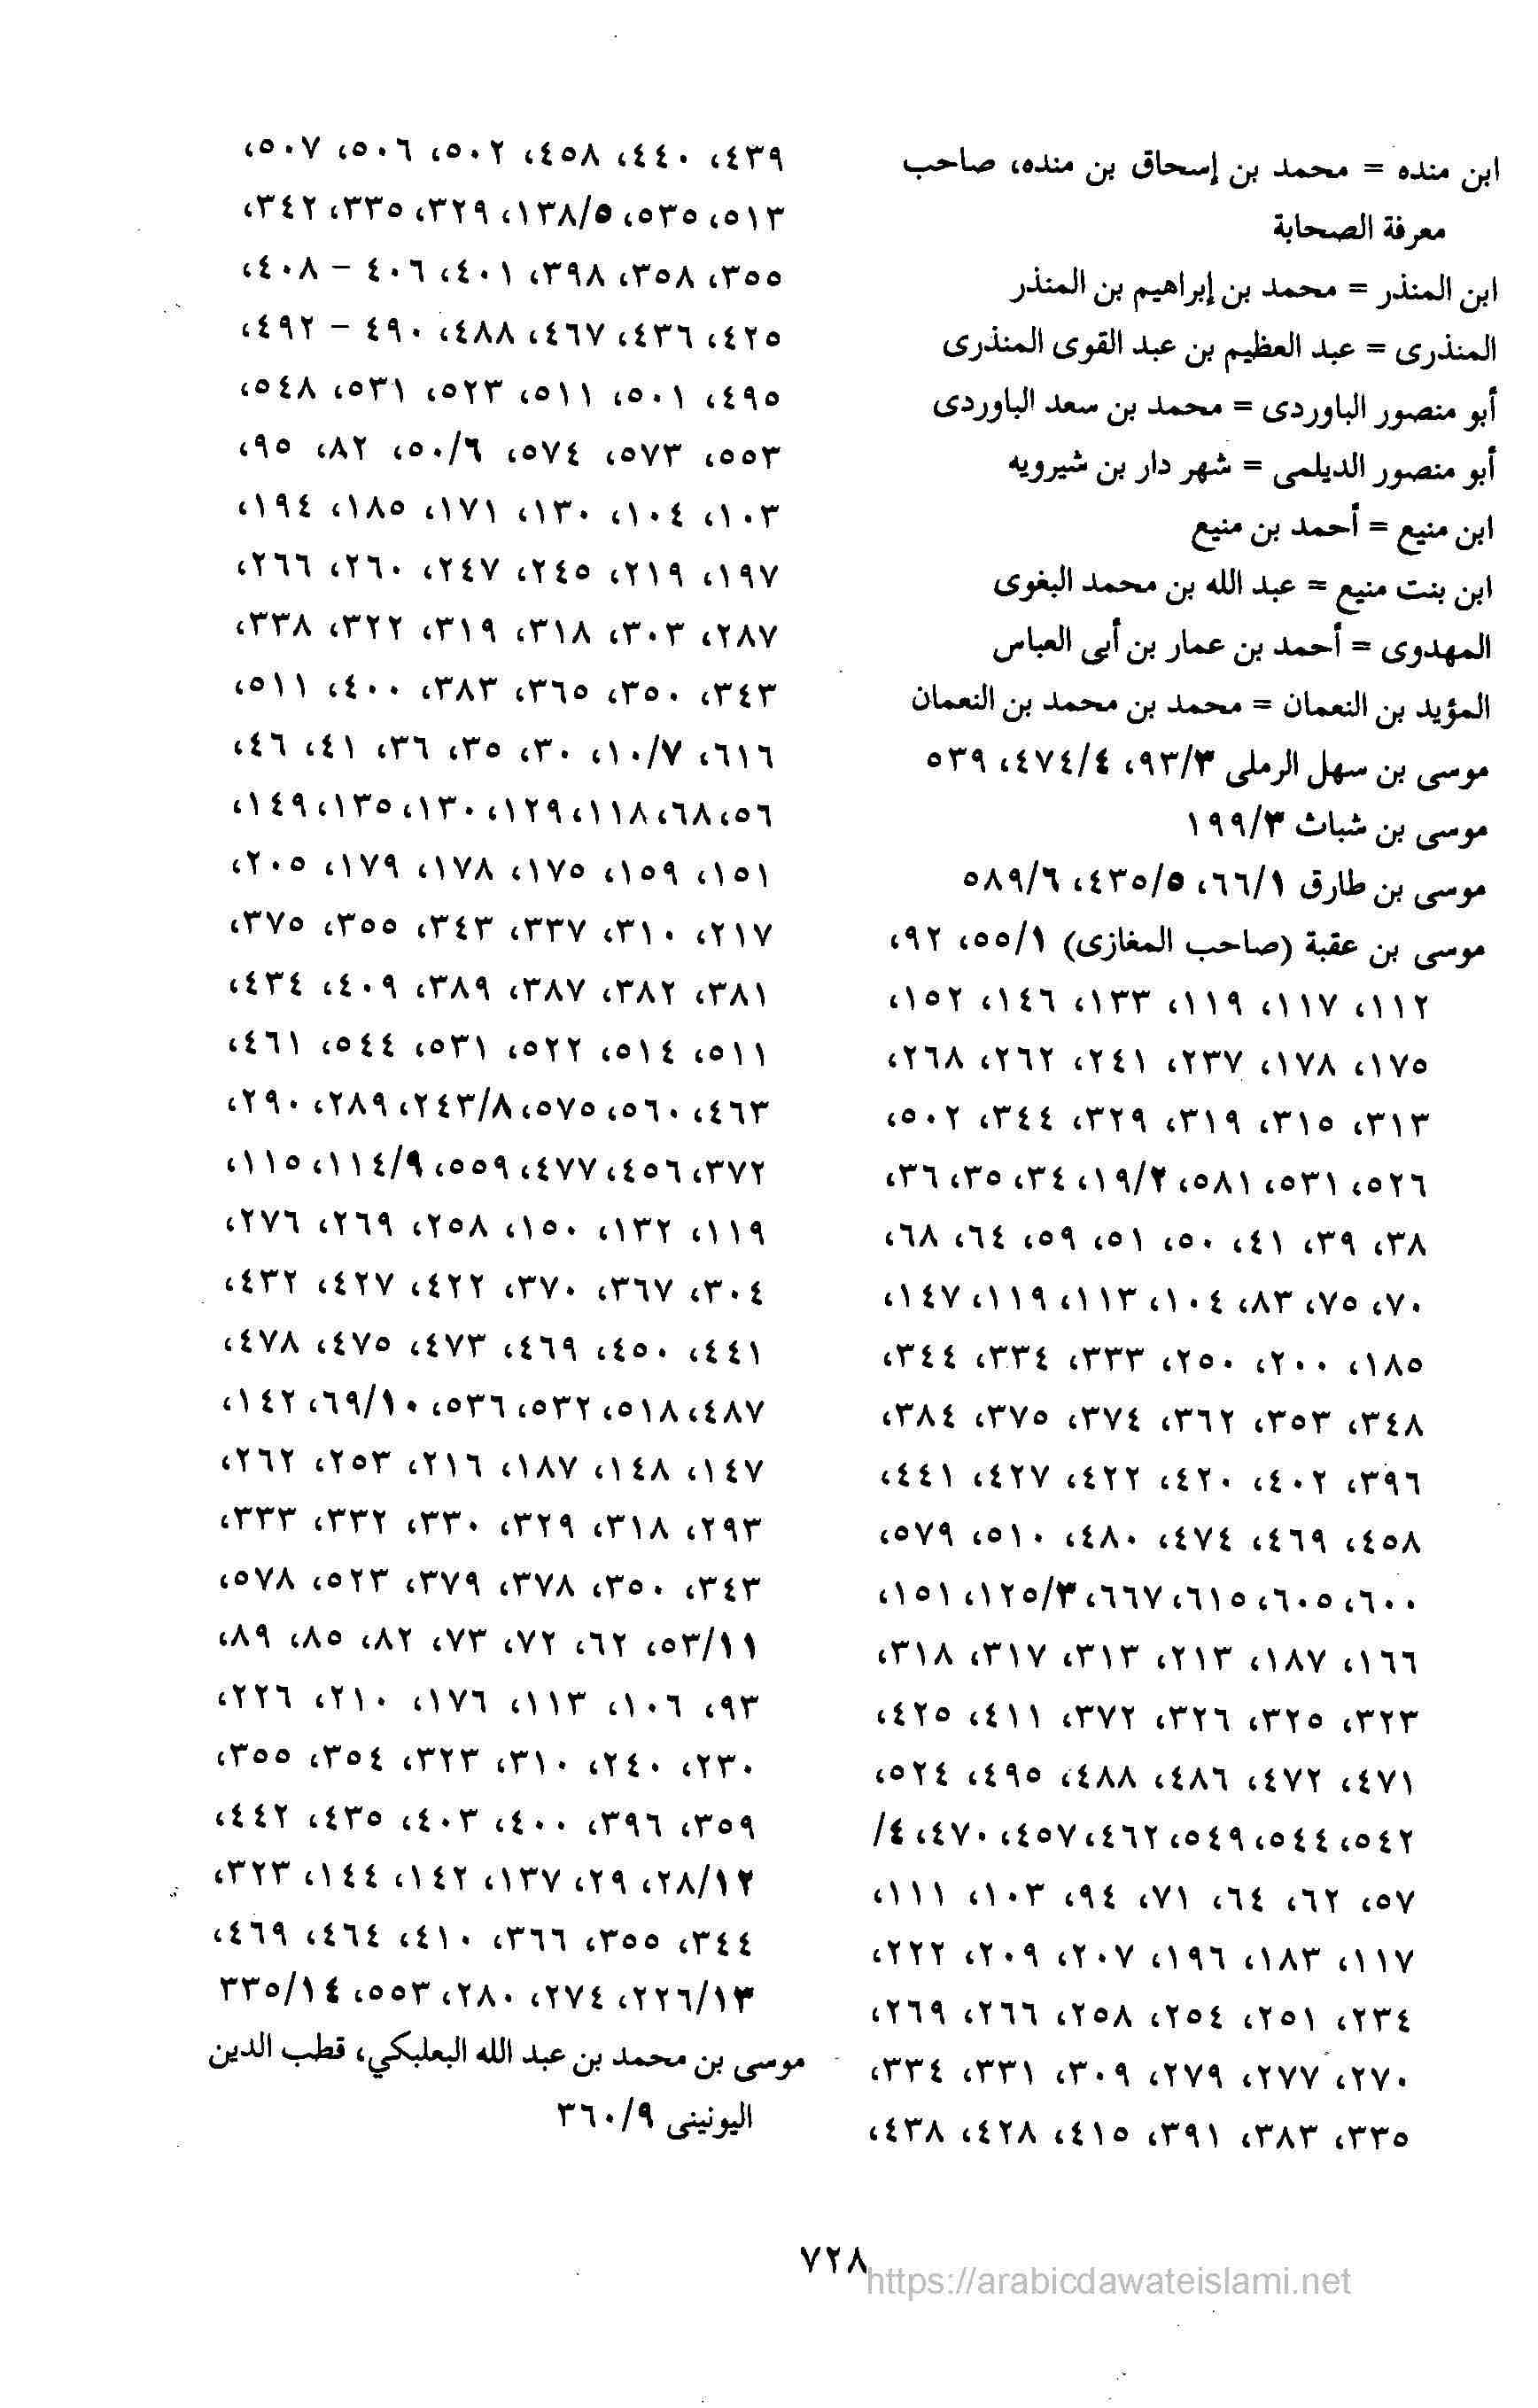 ابن منده = محمد بن إسحاق بن منده، صاحب
معرفة الصحابة
ابن المنذر = محمد بن إبراهيم بن المنذر
المنذرى = عبد العظيم بن عبد القوى المنذرى
أبو منصور الباوردى = محمد بن سعد الباوردى
أبو منصور الديلمى = شهر دار بن شيرويه
ابن منيع = أحمد بن منيع
ابن بنت منيع = عبد الله بن محمد البغوى
المهدوى = أحمد بن عمار بن أبى العباس
المؤيد بن النعمان = محمد بن محمد بن النعمان
موسى بن سهل الرملى ٩٣/٣، ٤٧٤/٤، ٥٣٩
موسى بن شباث ١٩٩/٣
موسى بن طارق ٦٦/١، ٤٣٥/٥، ٥٨٩/٦
موسى بن عقبة (صاحب المغازى) ٥٥/١، ٩٢،
١١٢، ١١٧، ١١٩، ١٣٣، ١٤٦، ١٥٢،
١٧٥، ١٧٨، ٢٣٧، ٢٤١، ٢٦٢، ٢٦٨،
٣١٣، ٣١٥، ٣١٩، ٣٢٩، ٣٤٤، ٥٠٢،
٥٢٦، ٥٣١، ٥٨١، ١٩/٢، ٣٤، ٣٥، ٣٦،
٣٨، ٣٩، ٤١، ٥٠، ٥١، ٥٩، ٦٤، ٦٨،
٧٠، ٧٥، ٨٣، ١٠٤، ١١٣، ١١٩، ١٤٧،
١٨٥، ٢٠٠، ٢٥٠، ٣٣٣، ٣٣٤، ٣٤٤،
٣٤٨، ٣٥٣، ٣٦٢، ٣٧٤، ٣٧٥، ٣٨٤،
٣٩٦، ٤٠٢، ٤٢٠، ٤٢٢، ٤٢٧، ٤٤١،
٤٥٨، ٤٦٩، ٤٧٤، ٤٨٠، ٥١٠، ٥٧٩،
٦٠٠، ٦٠٥، ٦١٥، ٦٦٧، ١٢٥/٣، ١٥١،
١٦٦، ١٨٧، ٢١٣، ٣١٣، ٣١٧، ٣١٨،
٣٢٣، ٣٢٥، ٣٢٦، ٣٧٢، ٤١١، ٤٢٥،
٤٧١، ٤٧٢، ٤٨٦، ٤٨٨، ٤٩٥، ٥٢٤،
٥٤٢، ٥٤٤، ٥٤٩، ٤٦٢، ٤٥٧، ٤٧٠، ٤/
٥٧، ٦٢، ٦٤، ٧١، ٩٤، ١٠٣، ١١١،
١١٧، ١٨٣، ١٩٦، ٢٠٧، ٢٠٩، ٢٢٢،
٢٣٤، ٢٥١، ٢٥٤، ٢٥٨، ٢٦٦، ٢٦٩،
٢٧٠، ٢٧٧، ٢٧٩، ٣٠٩، ٣٣١، ٣٣٤،
٣٣٥، ٣٨٣، ٣٩١، ٤١٥، ٤٢٨، ٤٣٨،
٤٣٩، ٤٤٠، ٤٥٨، ٥٠٢، ٥٠٦، ٥٠٧،
٥١٣، ٥٣٥، ١٣٨/٥، ٣٢٩، ٣٣٥، ٣٤٢،
٣٥٥، ٣٥٨، ٣٩٨، ٤٠١، ٤٠٦ - ٤٠٨،
٤٢٥، ٤٣٦، ٤٦٧، ٤٨٨، ٤٩٠ - ٤٩٢،
٤٩٥، ٥٠١، ٥١١، ٥٢٣، ٥٣١، ٥٤٨،
٥٥٣، ٥٧٣، ٥٧٤، ٥٠/٦، ٨٢، ٩٥،
١٠٣، ١٠٤، ١٣٠، ١٧١، ١٨٥، ١٩٤،
١٩٧، ٢١٩، ٢٤٥، ٢٤٧، ٢٦٠، ٢٦٦،
٢٨٧، ٣٠٣، ٣١٨، ٣١٩، ٣٢٢، ٣٣٨،
٣٤٣، ٣٥٠، ٣٦٥، ٣٨٣، ٤٠٠، ٥١١،
٦١٦، ١٠/٧، ٣٠، ٣٥، ٣٦، ٤١، ٤٦،
٥٦، ٦٨، ١١٨، ١٢٩، ١٣٠، ١٣٥، ١٤٩،
١٥١، ١٥٩، ١٧٥، ١٧٨، ١٧٩، ٢٠٥،
٢١٧، ٣١٠، ٣٣٧، ٣٤٣، ٣٥٥، ٣٧٥،
٣٨١، ٣٨٢، ٣٨٧، ٣٨٩، ٤٠٩، ٤٣٤،
٥١١، ٥١٤، ٥٢٢، ٥٣١، ٥٤٤، ٤٦١،
٤٦٣، ٥٦٠، ٥٧٥، ٢٤٣/٨، ٢٨٩، ٢٩٠،
٣٧٢، ٤٥٦، ٤٧٧، ٥٥٩، ١١٤/٩، ١١٥،
١١٩، ١٣٢، ١٥٠، ٢٥٨، ٢٦٩، ٢٧٦،
٣٠٤، ٣٦٧، ٣٧٠، ٤٢٢، ٤٢٧، ٤٣٢،
٤٤١، ٤٥٠، ٤٦٩، ٤٧٣، ٤٧٥، ٤٧٨،
٤٨٧، ٥١٨، ٥٣٢، ٥٣٦، ٦٩/١٠، ١٤٢،
١٤٧، ١٤٨، ١٨٧، ٢١٦، ٢٥٣، ٢٦٢،
٢٩٣، ٣١٨، ٣٢٩، ٣٣٠، ٣٣٢، ٣٣٣،
٣٤٣، ٣٥٠، ٣٧٨، ٣٧٩، ٥٢٣، ٥٧٨،
٥٣/١١، ٦٢، ٧٢، ٧٣، ٨٢، ٨٥، ٨٩،
٩٣، ١٠٦، ١١٣، ١٧٦، ٢١٠، ٢٢٦،
٢٣٠، ٢٤٠، ٣١٠، ٣٢٣، ٣٥٤، ٣٥٥،
٣٥٩، ٣٩٦، ٤٠٠، ٤٠٣، ٤٣٥، ٤٤٢،
٢٨/١٢، ٢٩، ١٣٧، ١٤٢، ١٤٤، ٣٢٣،
٣٤٤، ٣٥٥، ٣٦٦، ٤١٠، ٤٦٤، ٤٦٩،
٢٢٦/١٣، ٢٧٤، ٢٨٠، ٥٥٣، ٣٣٥/١٤
موسى بن محمد بن عبد الله البعلبكي، قطب الدين
اليونينى ٣٦٠/٩
٧٢٨
https://arabicdawateislami.net